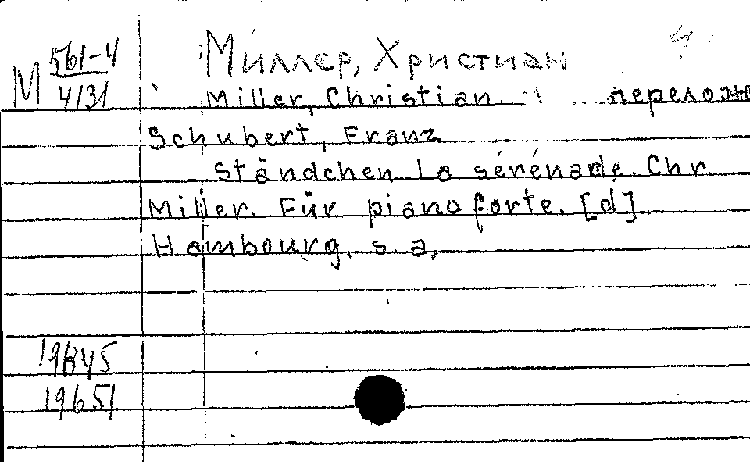 М 561-4
4131
Миллер, Христиан
Miller, Christian перелож
Schubert, Franz
Ständchen La sérénade. Chr
Miller. Für pianoforte. [d]
Hambourg, s. a.
19645
19651